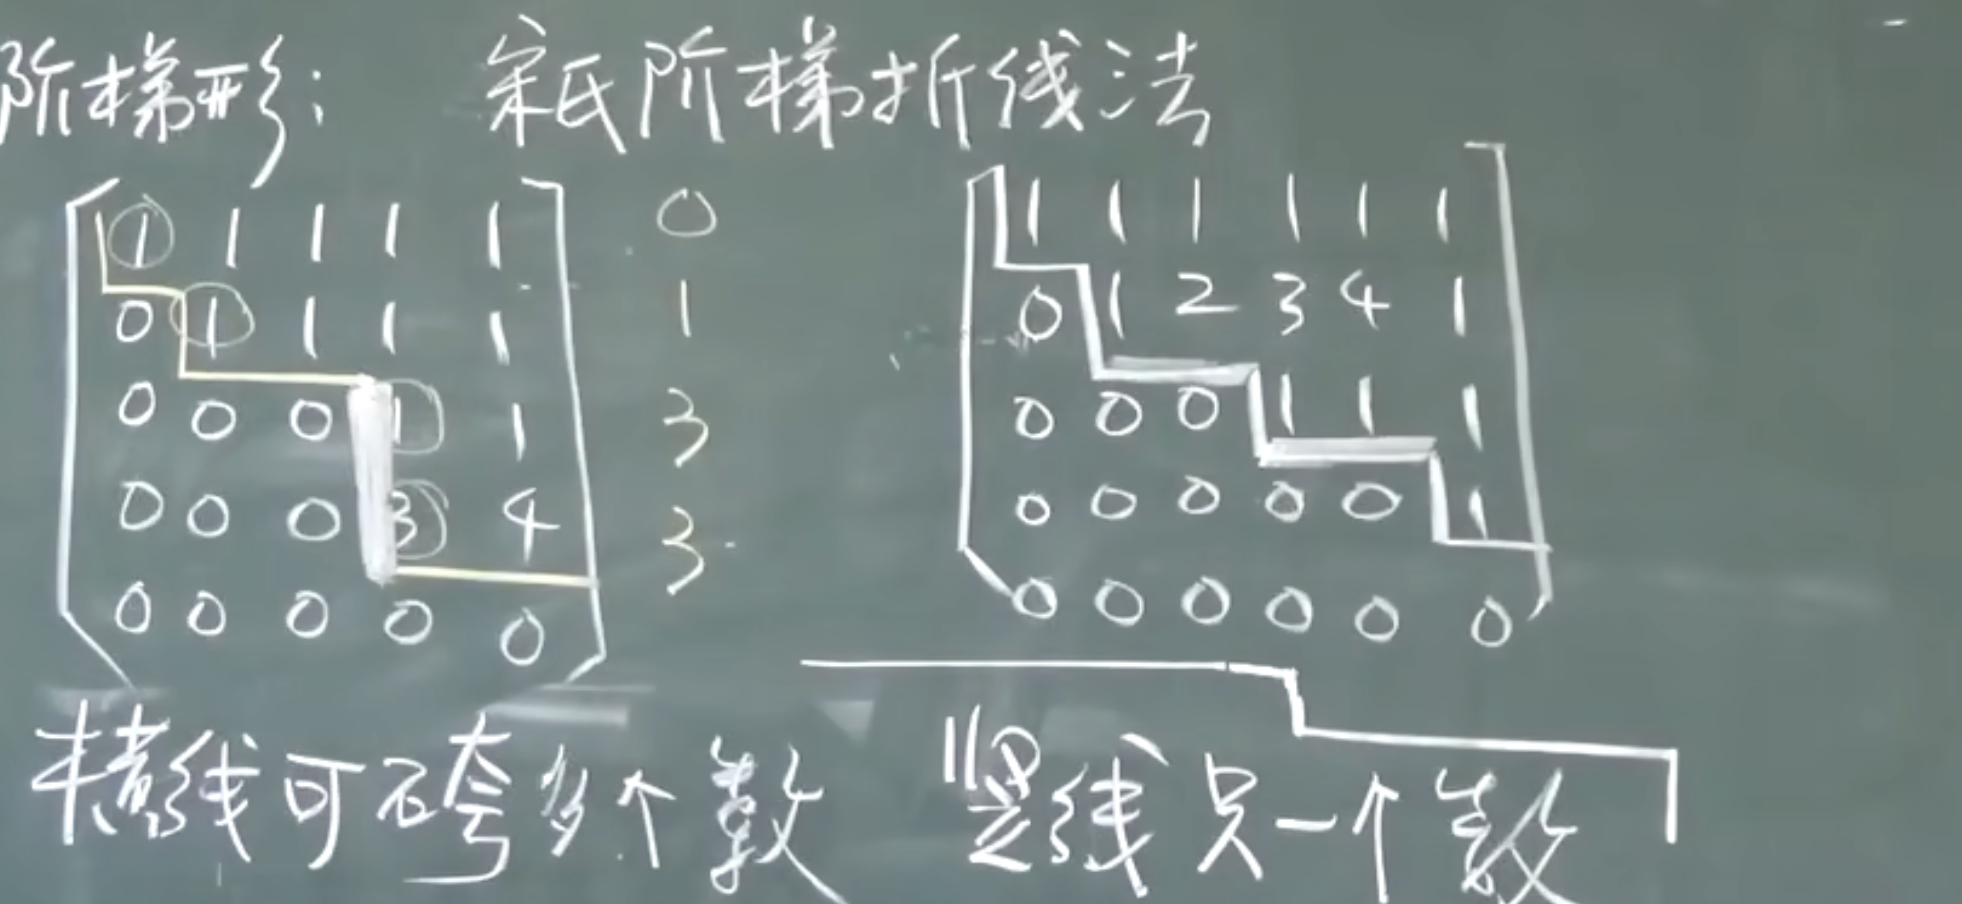 阶梯形: 宋氏阶梯折线法
1 1 1 1 1 0
0 1 1 1 1 1
0 0 0 1 1 3
0 0 0 3 4 3
0 0 0 0 0
1 1 1 1 1 1
0 1 2 3 4 1
0 0 0 1 1 1
0 0 0 0 0 1
0 0 0 0 0 0
横线可跨多个数 竖线只一个数